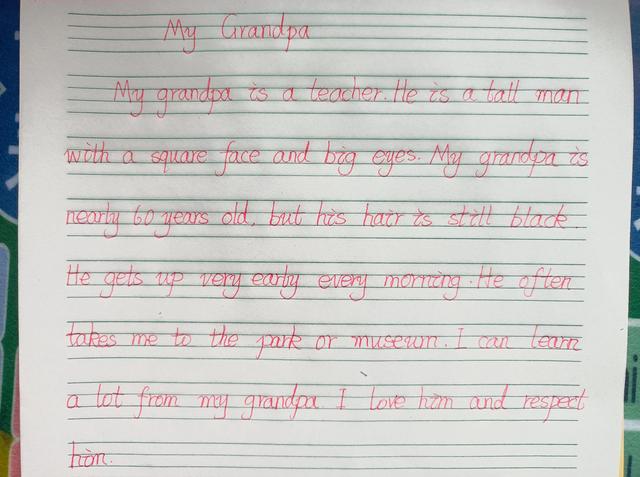 My Grandpa
My grandpa is a teacher. He is a tall man
with a square face and big eyes. My grandpa is
nearly 60 years old, but his hair is still black.
He gets up very early every morning. He often
takes me to the park or museum. I can learn
a lot from my grandpa. I love him and respect
him.